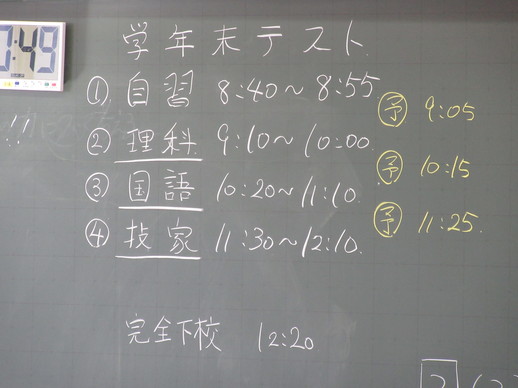 :49
学年末テスト
① 自習 8:40〜8:55
㊢ 9:05
② 理科 9:10〜10:00.
㊢ 10:15
③ 国語 10:20〜11:10.
㊢ 11:25.
④ 技家 11:30〜12:10.
完全下校 12:20